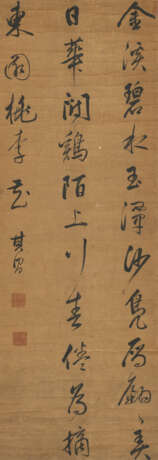 金溪碧水玉潭沙鳧雁翩翩弄
日華鬪鷄陌上行春倦為摘
東園桃李花 其昌